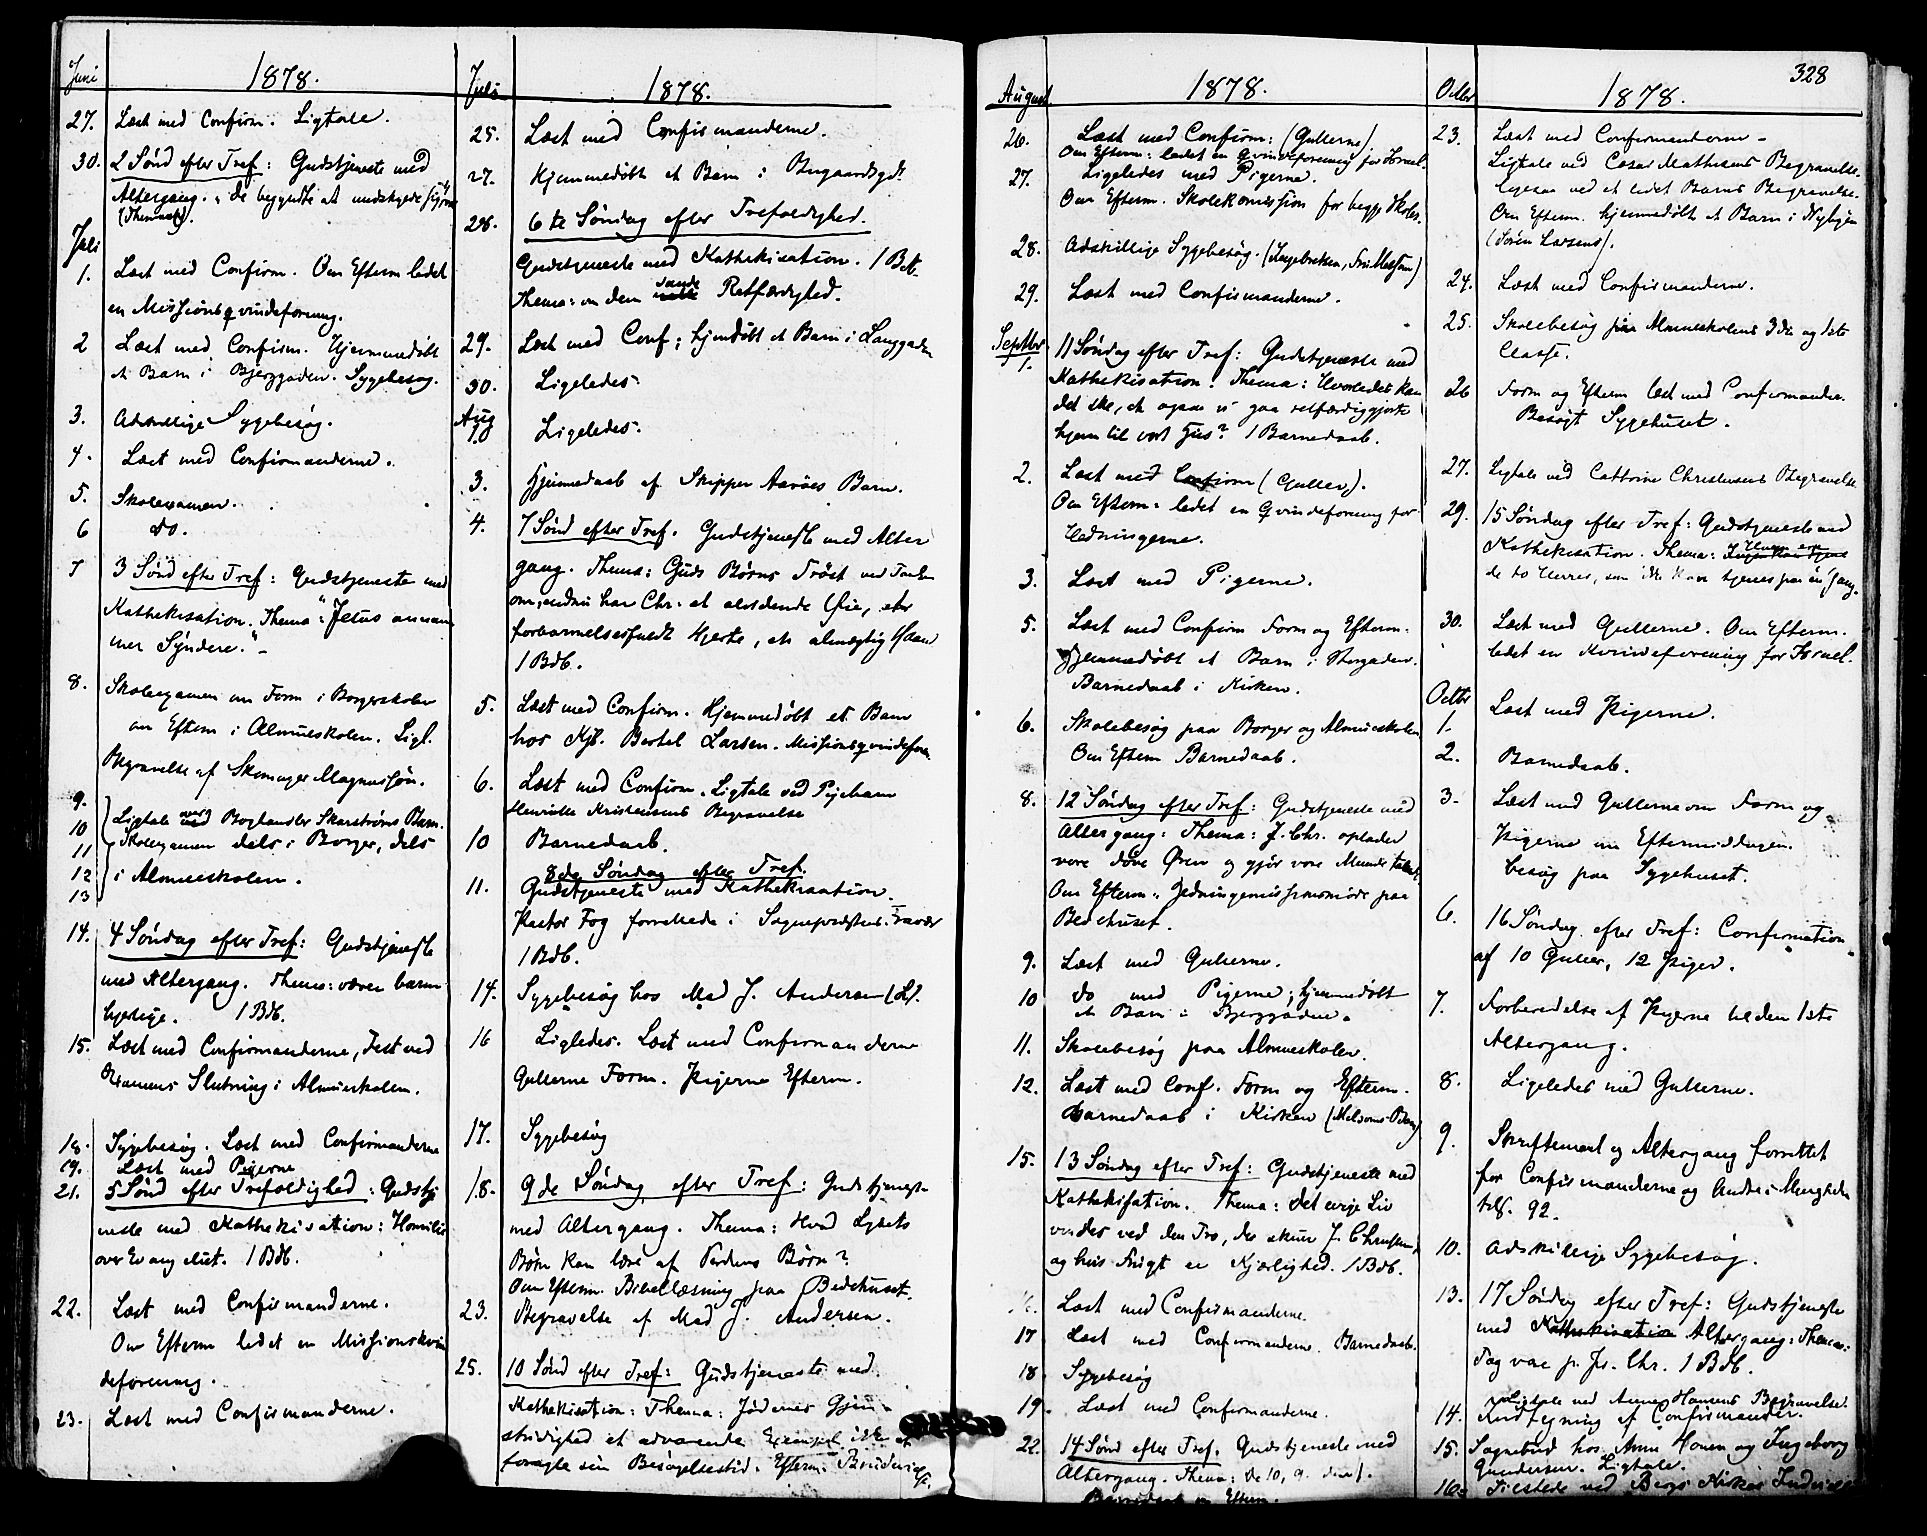 Juni
1878.
27. Læst med Confirm. Ligtale.
30. 2 Sønd efter Tref: Gudstjeneste med
Altergang. "de begyndte at undskylde sig
(Thema).
Juli
1. Læst med Confirm. Om Efterm ledet
en Missionsqvindeforening.
2 Læst med Confirm. Hjemmedøbt
et Barn i Bjerggaden. Sygebesøg.
3. Adskillige Sygebesøg.
4. Læst med Confirmanderne.
5. Skoleexamen.
6 do.
7 3 Sønd efter Tref: Gudstjeneste med
Kathekisation. Thema "Jesus annam
mer Syndere."
8. Skoleexamen om Form i Borgerskolen
om Efterm i Almueskolen. Ligl.
Begravelse af Skomager Magnussøn.
9. Ligtale over Boghandler Skarstrøms Barn.
10
11 Skoleexamen dels i Borger, dels
12 i Almueskolen.
13
14. 4 Søndag efter Tref: Gudstjeneste
med Altergang. Thema: værer barm
hjertige. 1 Bdb.
15. Læst med Confirmanderne, Fest ved
Examens Slutning i Almueskolen.
18. Sygebesøg. Læst med Confirmanderne
19. Læst med Pigerne
21. 5 Sønd efter Trefoldighed: Gudstj
neste med Kathekisation: Homilie
over Evangeliet. 1 Bdb.
22. Læst med Confirmanderne.
Om Efterm ledet en Missionskvin
deforening.
23. Læst med Confirmanderne.
Juli
1878.
25. Læst med Confirmanderne.
27. Hjemmedøbt et Barn i
28. 6te Søndag efter Trefoldighed.
Gudstjeneste med Kathekisation. 1 Bdb.
Thema: om den sande Retfærdighed.
29. Læst med Conf; hjemdøbt et Barn i Langgaden
30. Ligeledes.
Aug
1. Ligeledes.
3. Hjemmedaab af Skipper Aarøes Barn.
4. 7 Sønd efter Tref. Gudstjeneste med Alter
gang. Thema: Guds Børns Trøst ved Tanken
om, endnu har Chr. et alvidende Øie, et
forbarmelsesfuldt Hjerte, en almægtig Haand
1 Bdb.
5. Læst med Confirm. Hjemmedøbt et Barn
hos Kjb. Bertel Larsen. Missionsqvindeforen.
6. Læst med Confirm. Ligtale ved Pigebarn
Henriette Kristensens Begravelse
10 Barnedaab.
8de Søndag efter Tref.
11. Gudstjeneste med Kathekisation.
Pastor Fog forrettede i Sognepræstens Fravær
1 Bdb.
14. Sygebesøg hos Mad J. Andersen
16 Ligledes. Læst med Confirmanderne
Gutterne Form. Pigerne Efterm.
17. Sygebesøg
18. 9de Søndag efter Tref: Gudstjeneste
med Altergang. Thema: Hvad Lysets
Børn kan lære af Verdens Børn?
Om Efterm. Bibellæsning paa Bedehuset.
23. Begravelse af Mad J. Andersen.
25. 10 Sønd efter Tref: Gudstjeneste med
Kathekisation: Thema: Jødernes Gjen-
stridighed et advarende Exempel ikke at
foragte sin Besøgelsestid. Efterm:
August
1878.
26. Læst med Confirm: (Gutterne)
Om Efterm: ledet en Qvindeforening for Israel.
27. Ligeledes med Pigerne.
Om Efterm. Skolekomission for begge Skoler.
28. Adskillige Sygebesøg.
29. Læst med Confirmanderne.
Septbr
1. 11 Søndag efter Tref: Gudstjeneste med
Kathekisation. Thema: Hvorledes kan
det ske, at ogsaa vi gaa retfærdiggjorte
hjem til vort Hus? 1 Barnedaab.
2. Læst med Confirm (Gutter).
Om Efterm: ledet en Qvindeforening for
Hedningerne.
3. Læst med Pigerne.
5. Læst med Confirm Form og Efterm.
Hjemmedøbt et Barn i Storgaden.
Barnedaab i Kirken.
6. Skolebesøg paa Borger og Almueskolen
Om Efterm Barnedaab.
8. 12 Søndag efter Tref: Gudstjeneste med
Altergang: Thema: J. Chr. oplader
vore døve Øren og gjør vore Munde talende.
Om Efterm: Hedningemissionsmøde paa
Bedehuset.
9. Læst med Gutterne.
10 do med Pigerne; hjemmedøbt
et Barn i Bjerggaden.
11. Skolebesøg paa Almueskolen.
12. Læst med Conf. Form og Efterm.
Barnedaab i Kirken
15. 13 Søndag efter Tref: Gudstjeneste med
Kathekisation. Thema: det evige Liv
vindes ved den Tro, der skuer J. Christum,
og hvis Frugt er Kjærlighed. 1 Bdb.
16. Læst med Confirmanderne.
17 Læst med Confirmanderne. Barnedaab.
18 Sygebesøg
19. Læst med Confirmanderne.
22. 14 Sønd efter Tref. Gudstjeneste med
Altergang. Thema: de 10, 9.
Octbr
1878.
328
23. Læst med Confirmanderne
Ligtale ved Begravelse.
Ligesaa ved et lidet Barns Begravelse.
Om Efterm. hjemmedøbt et Barn i
(Søren Larsens).
24. Læst med Confirmanderne.
25. Skolebesøg paa Almueskolens 3die og 1ste
Classe.
26 Form og Efterm læst med Confirmander.
Besøgt Sygehuset.
27. Ligtale ved Cathrine Christensens Begravelse.
29. 15 Søndag efter Tref: Gudstjeneste med
Kathekisation. Thema:
de to Herrer, som ikke kan tjenes paa en Gang.
30. Læst med Gutterne. Om Efterm.
ledet en Kvindeforening for Israel.
Octbr
1. Læst med Pigerne.
2. Barnedaab.
3. Læst med Gutterne om Form og
Pigerne om Eftermiddagen.
besøg paa Sygehuset.
6. 16 Søndag efter Tref: Confirmation
af 10 Gutter, 12 Piger.
7. Forberedelse af Pigerne til den 1ste
Altergang.
8. Ligeledes med Gutterne.
9. Skriftemaal og Altergang forrettet
for Confirmanderne og Andre i Menigheden
tils. 92.
10. Adskillige Sygebesøg.
13. 17 Søndag efter Tref: Gudstjeneste
med Kathekisation Altergang: Thema:
Dag var p. Js. Chr. 1 Bdb.
Ligtale ved Anne Hansens Begravelse.
14. Indtegning af Confirmander.
15. Sognebud hos Anne Hansen og Ingeborg
Gundersen. Ligtale.
16. Tilstede ved Bergs Kirkes